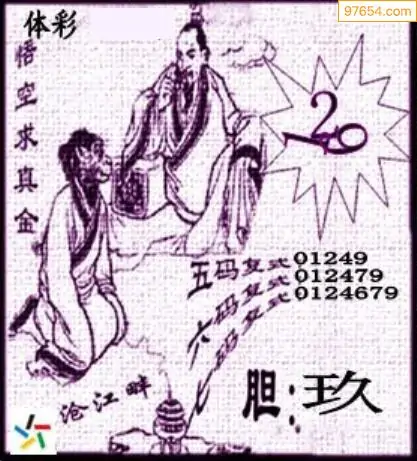 97654.com
体彩
悟空求真金
219
五码复式01249
六码复式012479
七码复式0124679
沧江畔
胆:玖